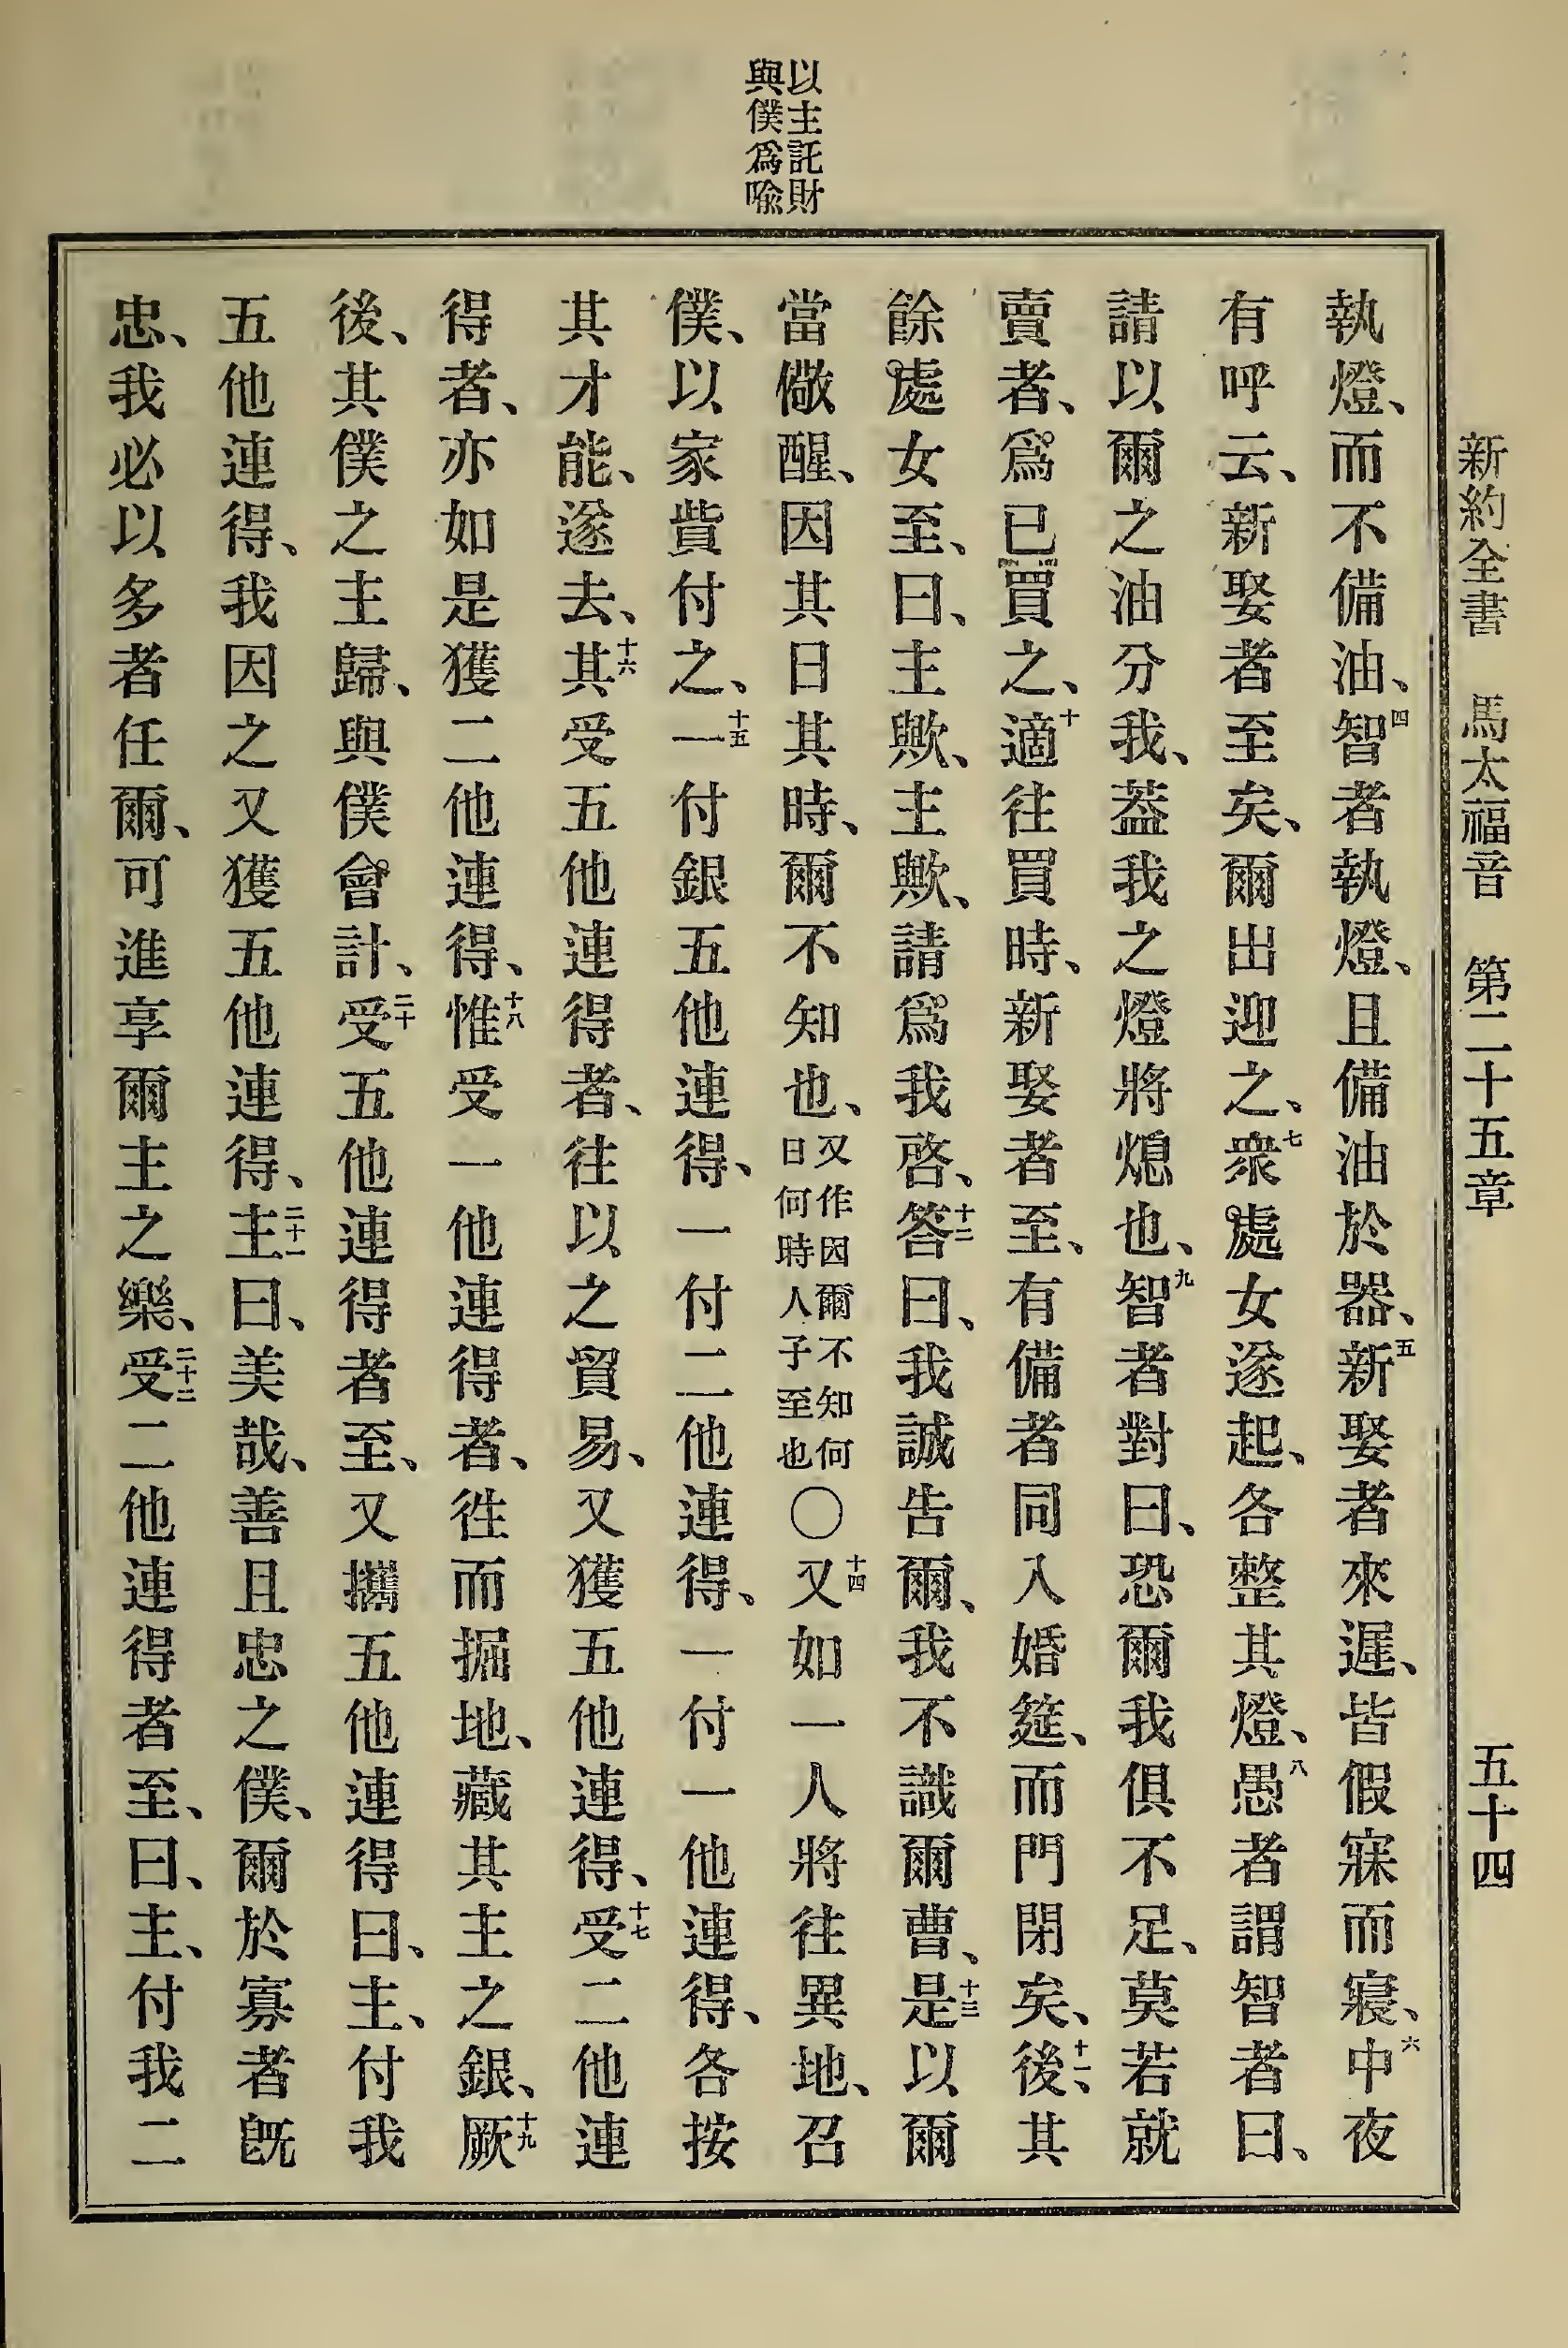 以主託財
與僕爲喩
新約全書 馬太福音 第二十五章 五十四
執燈、而不備油、四智者執燈、且備油於器、五新娶者來遲、皆假寐而寢、六中夜
有呼云、新娶者至矣、爾出迎之、七衆處女遂起、各整其燈、八愚者謂智者曰、
請以爾之油分我、葢我之燈將熄也、九智者對曰、恐爾我俱不足、莫若就
賣者、爲已買之、十適往買時、新娶者至、有備者同入婚筵、而門閉矣、十一後、其
餘處女至、曰、主歟、主歟、請爲我啓、十二答曰、我誠告爾、我不識爾曹、十三是以爾
當儆醒、因其日其時、爾不知也、又作因爾不知何日何時人子至也〇十四又如一人將往異地、召
僕、以家貲付之、十五一付銀五他連得、一付二他連得、一付一他連得、各按
其才能、遂去、十六其受五他連得者、往以之貿易、又獲五他連得、十七受二他連
得者、亦如是獲二他連得、十八惟受一他連得者、往而掘地、藏其主之銀、十九厥
後、其僕之主歸、與僕會計、二十受五他連得者至、又攜五他連得曰、主、付我
五他連得、我因之又獲五他連得、二十一主曰、美哉、善且忠之僕、爾於寡者旣
忠、我必以多者任爾、可進享爾主之樂、二十二受二他連得者至、曰、主、付我二